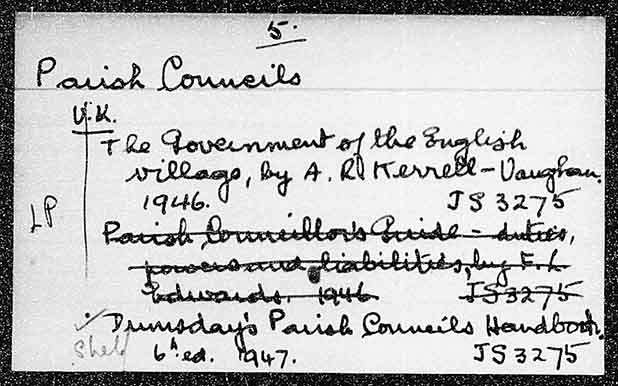 5.
Parish Councils
U.K.
The Government of the English
village, by A. R. Kerrell-Vaughan.
1946. JS 3275
LP
Parish Councillor's Guide - duties,
powers and liabilities, by F. L.
Edwards. 1946 JS3275
✓ Dumsday's Parish Councils Handbook.
Shelf
6th ed. 1947. JS 3275